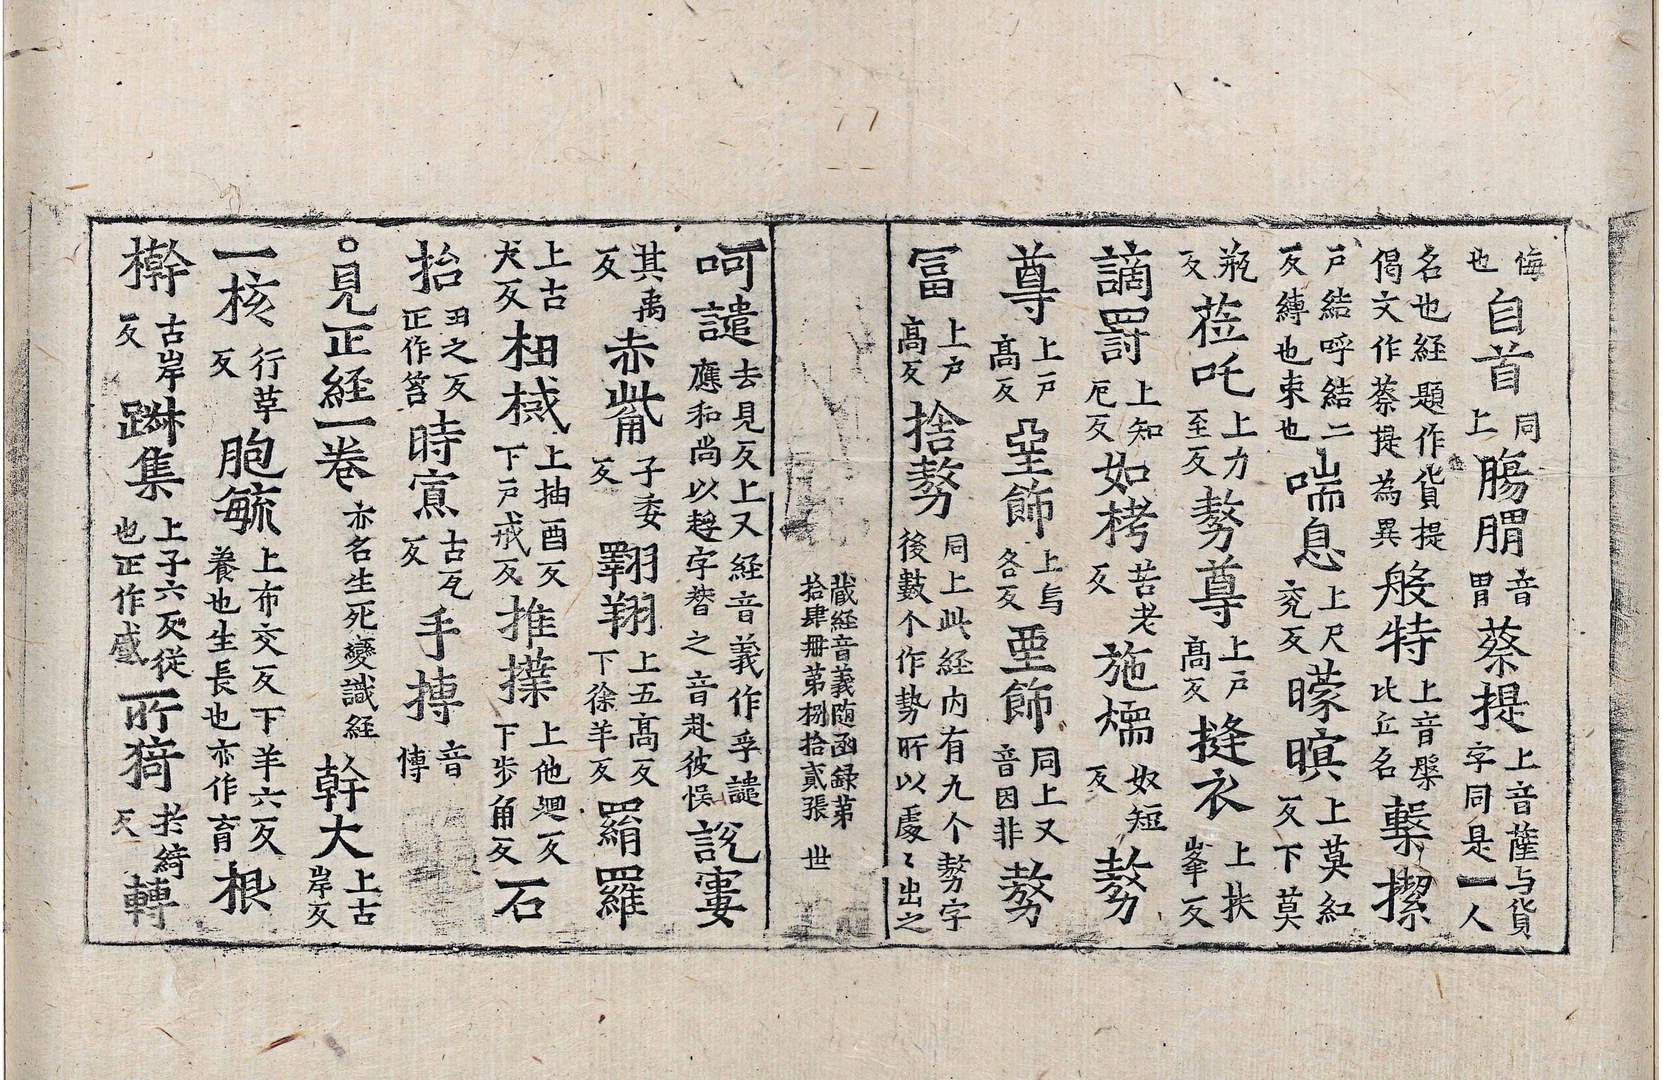 悔也自首同上膓胃音胃蔡提上音薩与貨字同是一人
名也経題作貨提偈文作蔡提為異般特上音槃比丘名繫㩢
戸結呼結二反縛也束也喘息上尺兖反朦瞑上莫紅反下莫
瓶反莅吒上力至反㔜尊上戸高反縫衣上扶峯反
謫罸上知厄反如栲苦老反施㬉奴短反㔜
尊上戸高反堊飾上烏各反垔飾同上又音因非㔜
冨上戸高反捨㔜同上此経内有九个㔜字後數个作勢所以處〻出之
藏経音義随函録第拾肆册第捌拾貳張 世
呵譴去見反上又経音義作孚譴應和尚以趍字替之音赴彼悮說寠
其禹反赤㭰子委反翺翔上五高反下徐羊反羂羅
上古犬反杻械上抽酉反下戸戒反推撲上他廻反下步角反石
抬丑之反正作笞時㝎古乞反手摶音傳
○見正経一卷亦名生死變識経幹大上古岸反
一核行革反胞毓上布交反下羊六反養也生長也亦作育根
簳古岸反踧集上子六反從也正作慼所猗於綺反轉